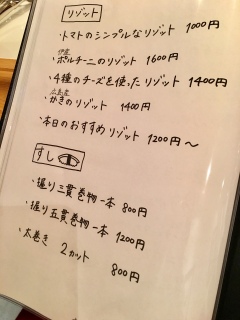 リゾット
・トマトのシンプルなリゾット 1000円
伊産
・ポルチーニのリゾット 1600円
・4種のチーズを使ったリゾット 1400円
広島産
・かきのリゾット 1400円
・本日のおすすめリゾット 1200円〜
すし
・握り三貫巻物一本 800円
・握り五貫巻物一本 1200円
・太巻き 2カット
800円